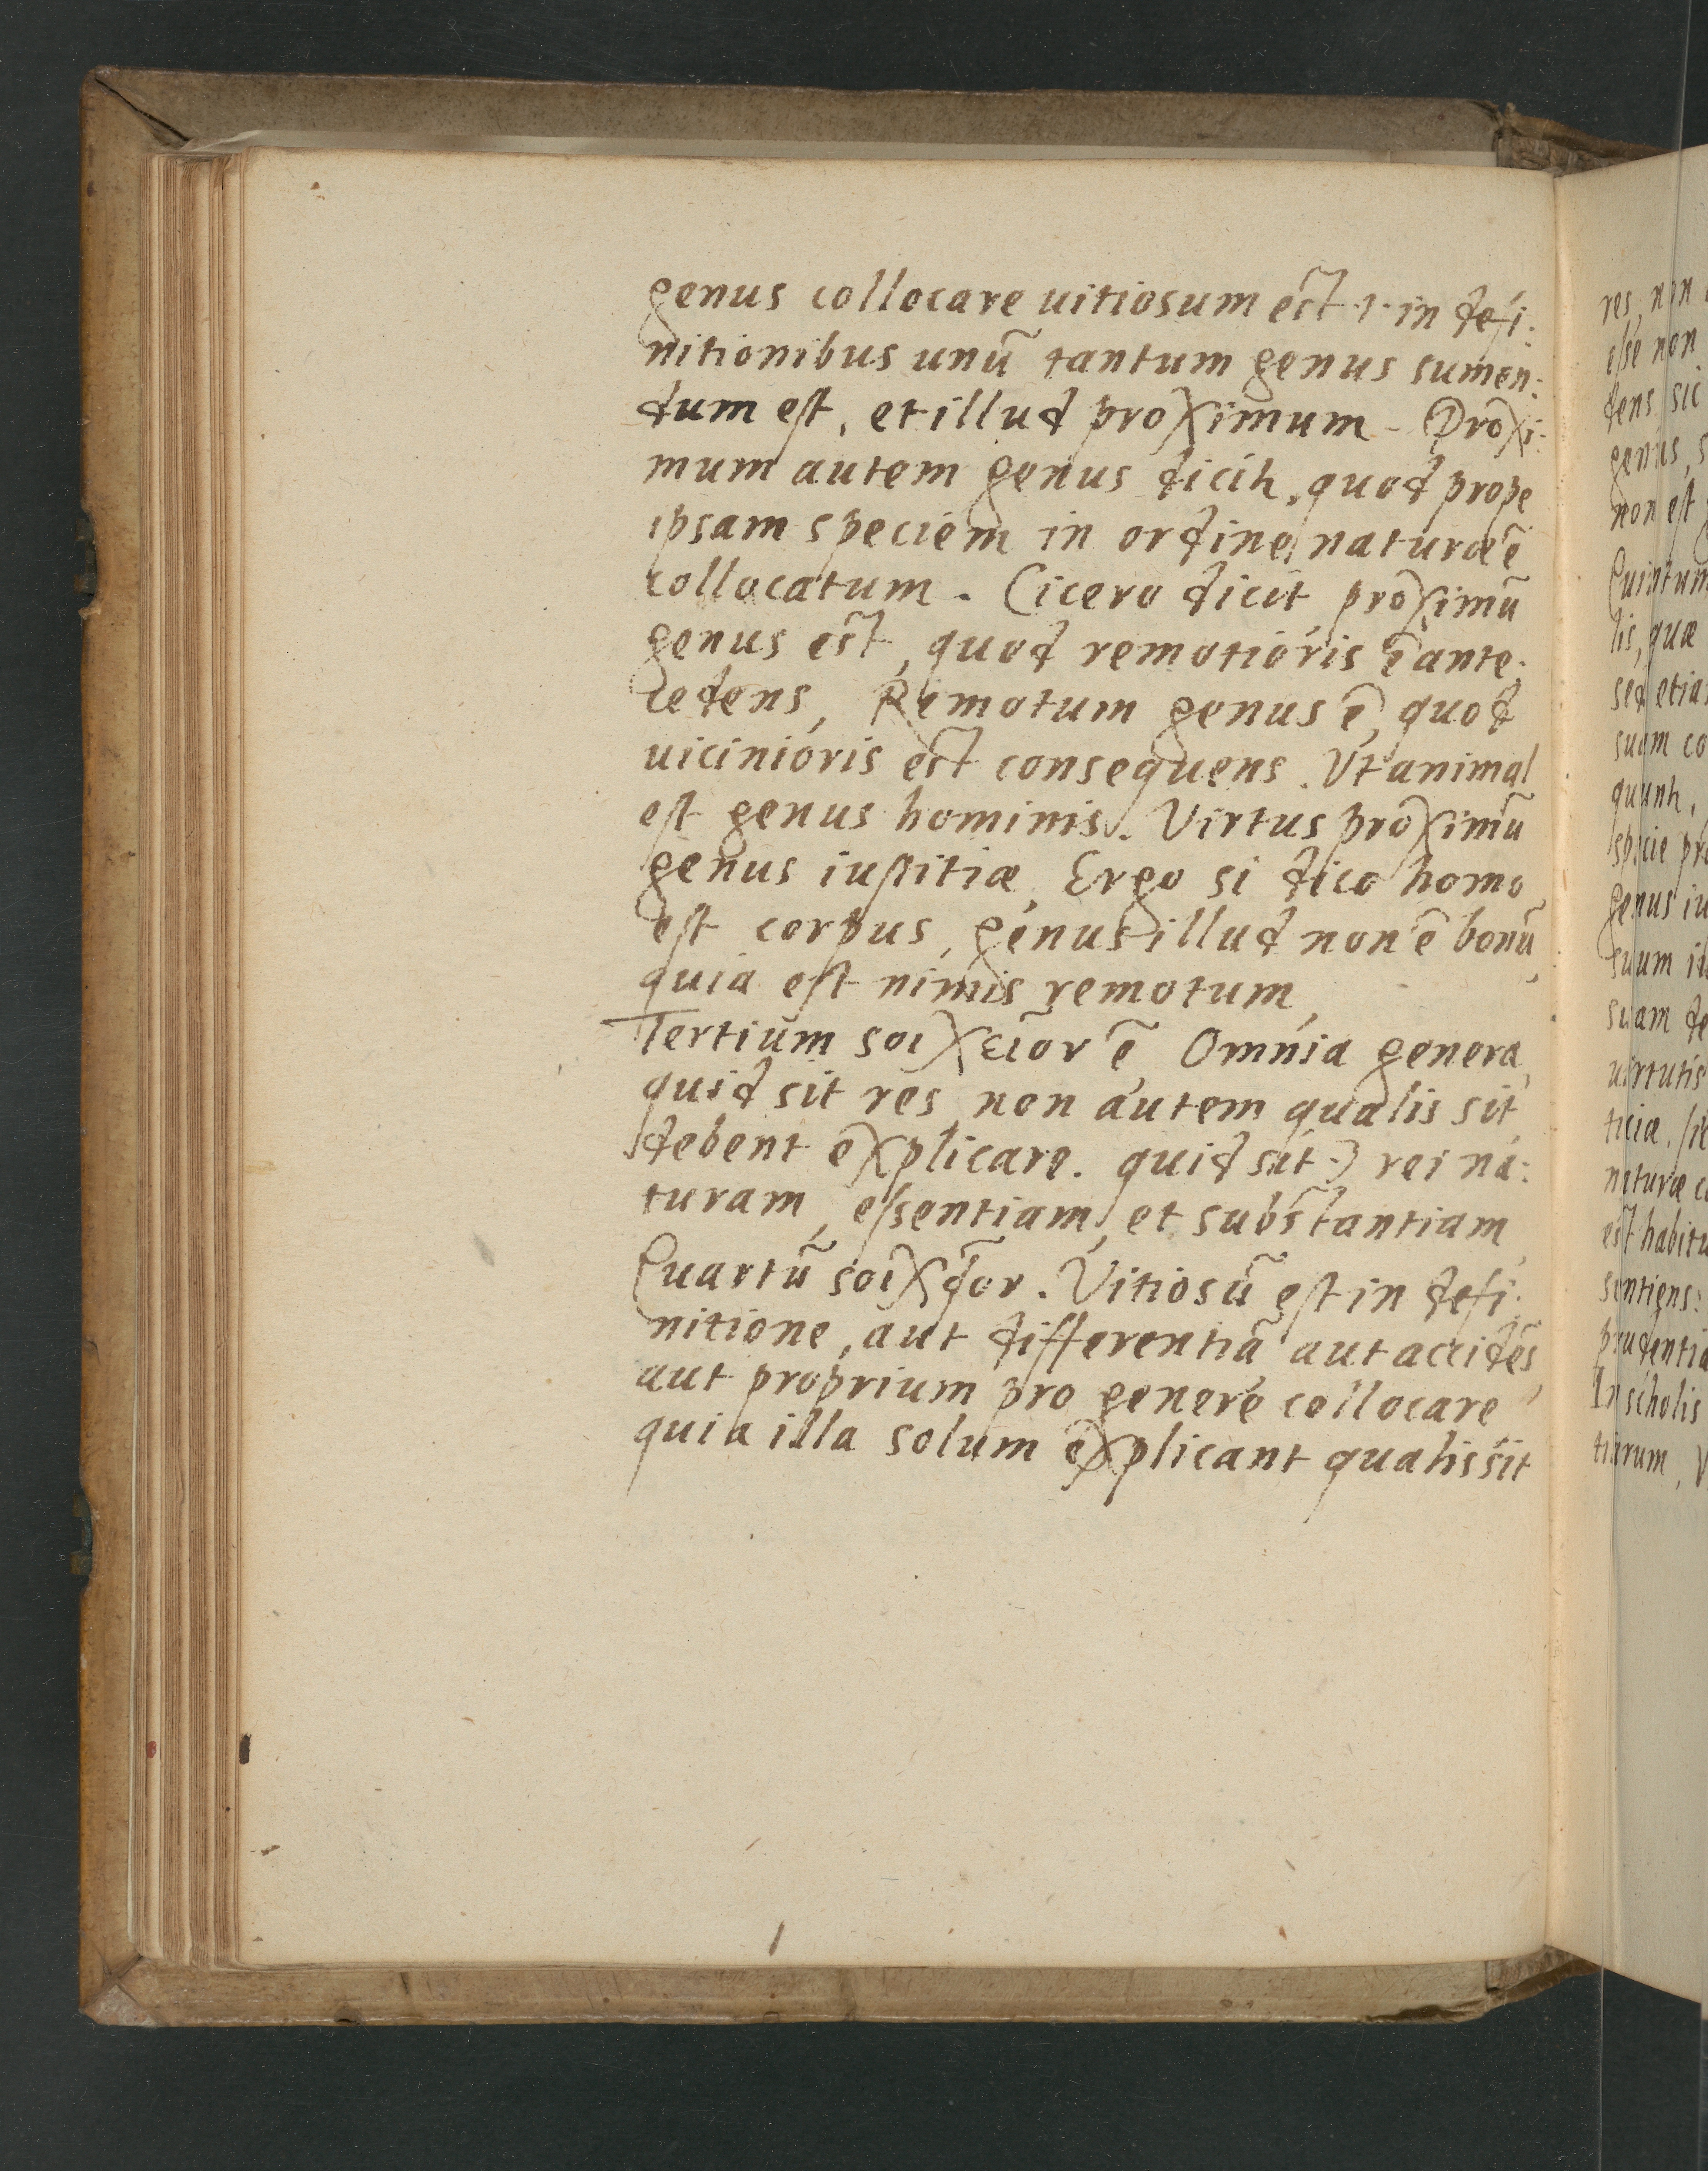 genus collocare uitiosum est .i. in defi:
nitionibus unũ tantum genus sumen:
dum est, et illud proximum. Proxi:
mum autem genus dicitr, quod prope
ipsam speciem in ordine naturæ ẽ
collocatum. Cicero dicit, proximũ
genus est, quod remotioris ẽ ante:
cedens, Remotum genus ẽ, quod
uicinioris est consequens. Vt animal
est genus hominis. Virtus proximũ
genus iustitiæ, Ergo si dico homo
est corpus, genus illud non ẽ bonũ,
quia est nimis remotum,
Tertium σοιχεῖον ẽ, Omnia genera,
quid sit res, non autem qualis sit,
debent explicare. quid sit .i. rei na:
turam, essentiam, et substantiam,
Quartũ σοιχεῖον. Vitiosũ est in defi:
nitione, aut differentiã aut accidẽs,
aut proprium pro genere collocare,
quia illa solum explicant qualis sit
res, non
esse non
dens sic
genus, s
non est
Quintum
lis, quæ
sed etia
suam co
quunt,
specie pro
genus iu
suum
suam de
uirtutis
ticiæ.
naturæ c
est habitu
sentiens:
prudentia
In scholis
tiarum, V